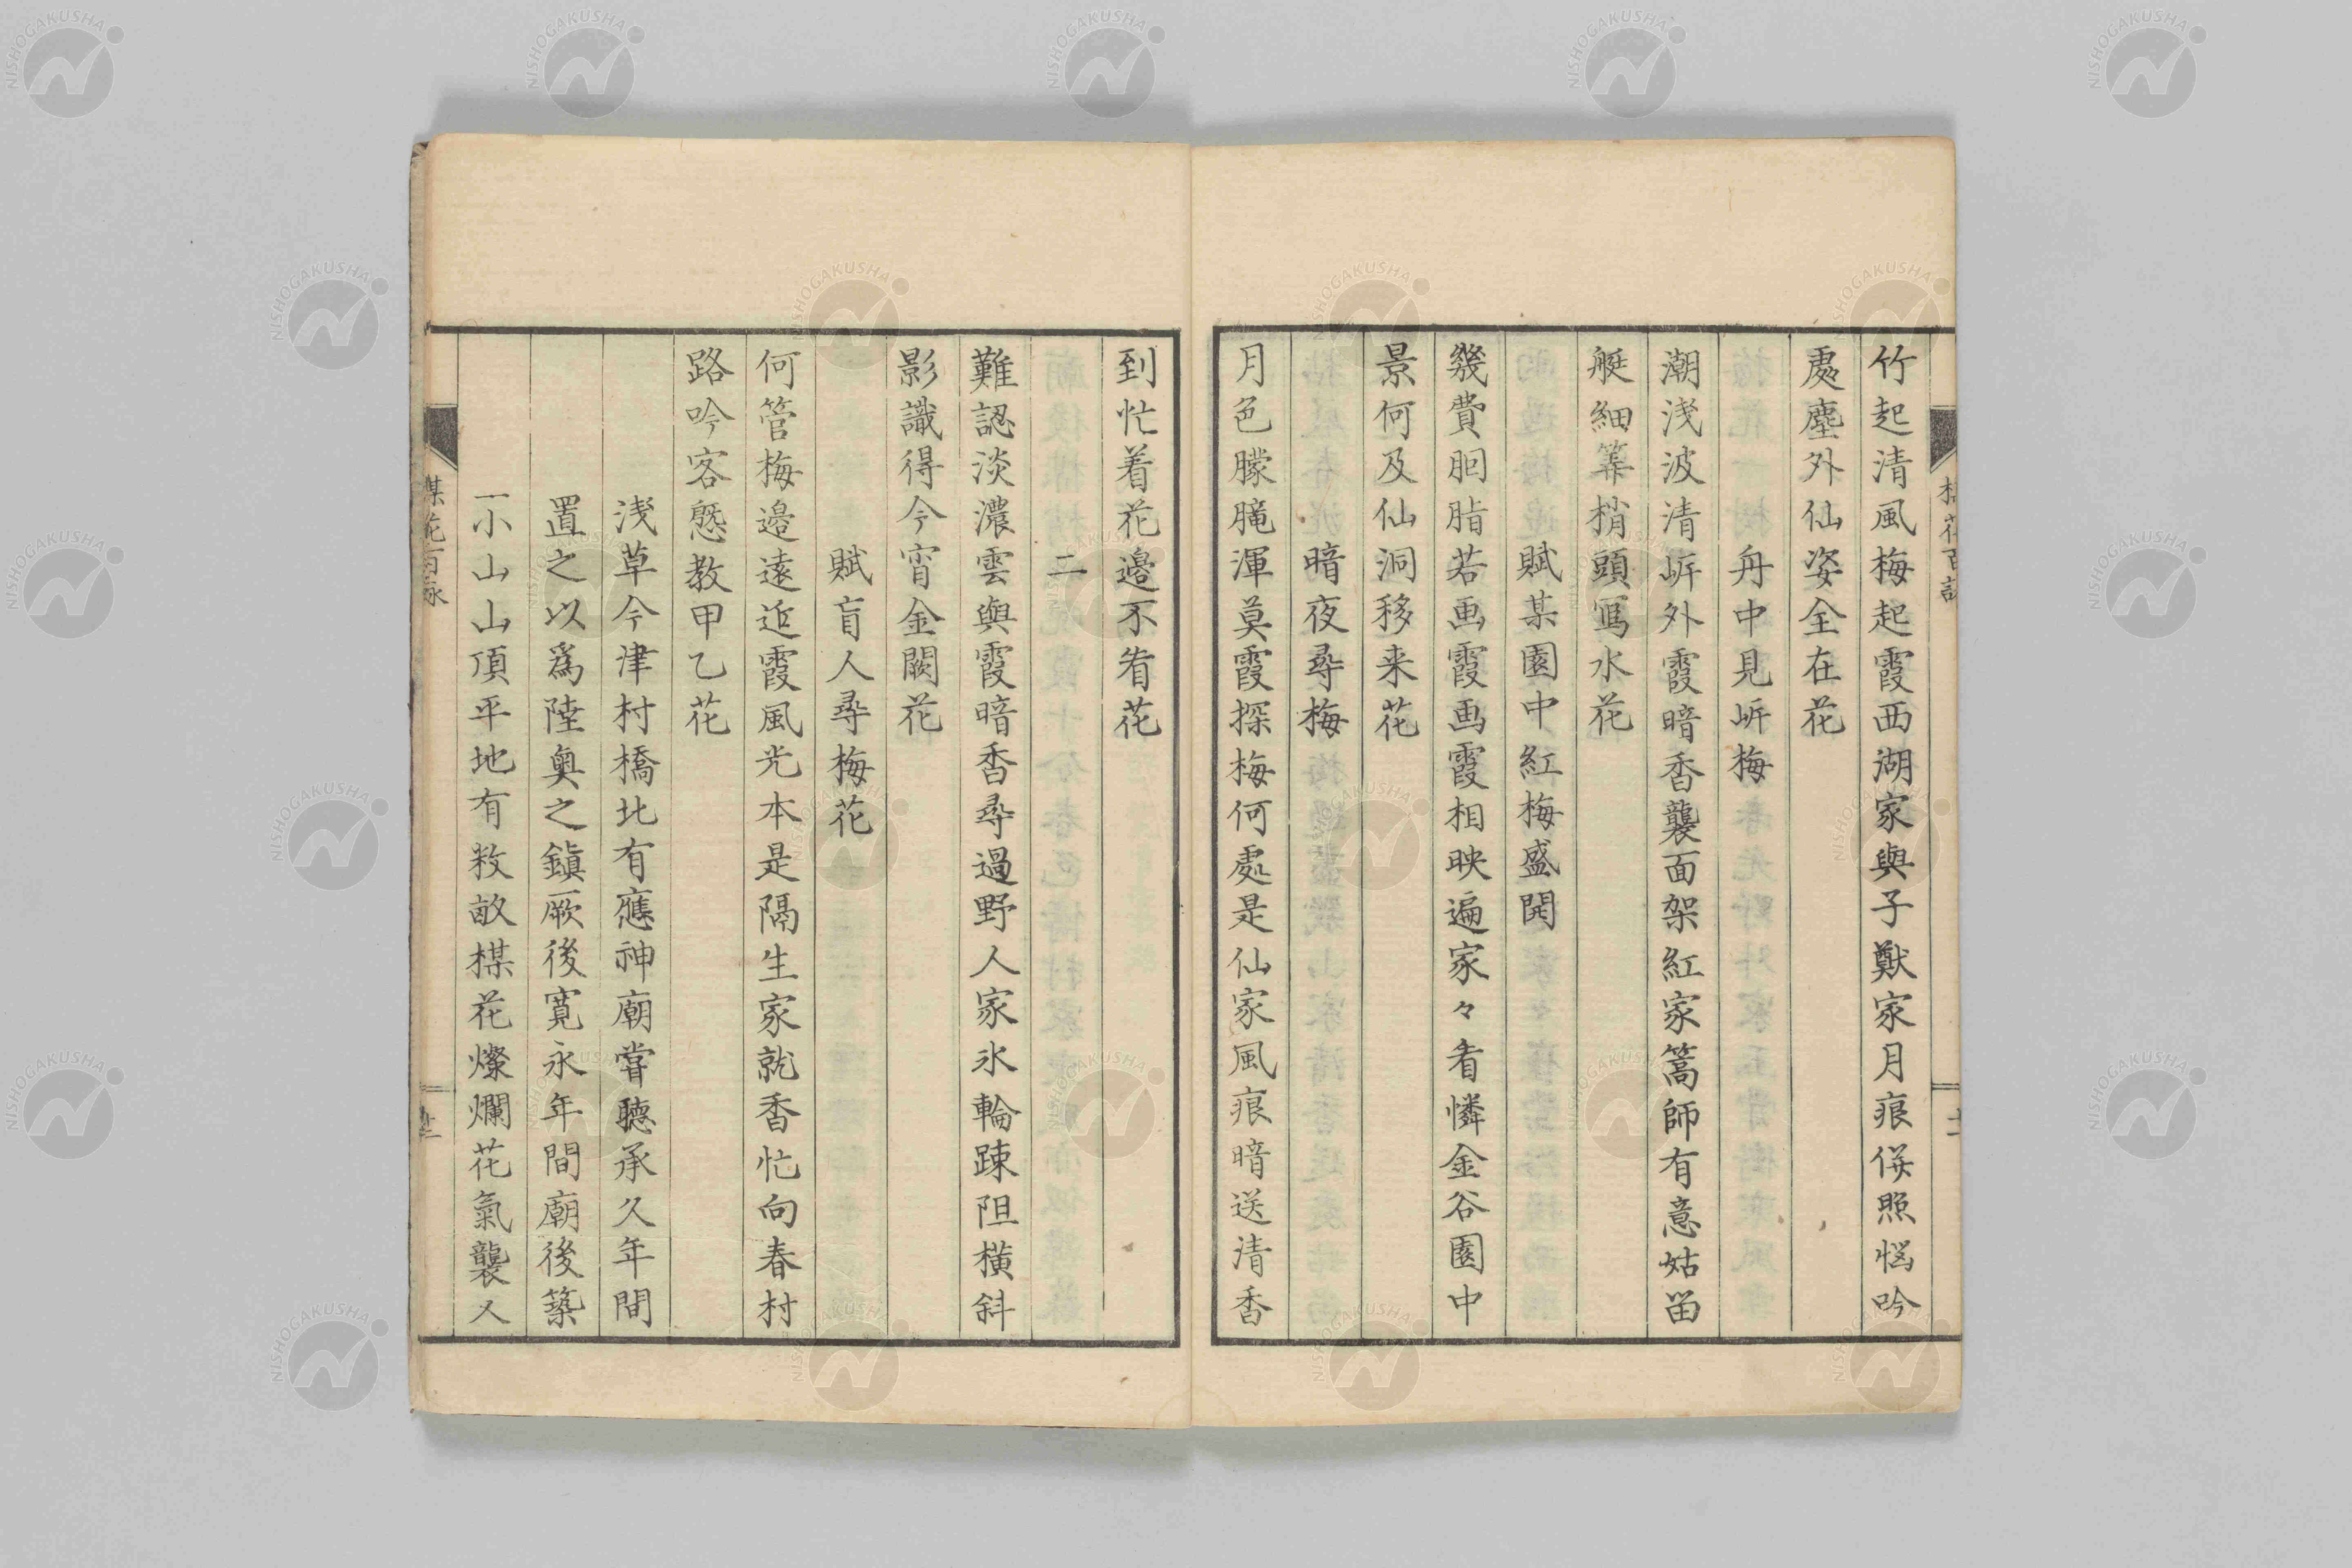 竹起清風梅起霞西湖家與子猷家月痕併照惱吟
處塵外仙姿全在花
舟中見岍梅
潮浅波清岍外霞暗香襲面架紅家篙師有意姑笛
艇細箒梢頭寫水花
賦某園中紅梅盛開
幾費胭脂若画霞画霞相映遍家々看憐金谷園中
景何及仙洞移来花
暗夜尋梅
月色朦朧渾莫霞探梅何處是仙家風痕暗送清香
到忙着花邉不看花
二
難認淡濃雲與霞暗香尋過野人家氷輪踈阻横斜
影識得今宵金闕花
賦盲人尋梅花
何管梅邉遠近霞風光本是隔生家就香忙向春村
路吟客慇教甲乙花
浅草今津村橋北有應神廟甞聴承久年間
置之以為陸奥之鎮厥後寛永年間廟後築
一小山山頂平地有数畝楳花燦爛花氣襲人
楳花百詠
NISHOGAKUSHA